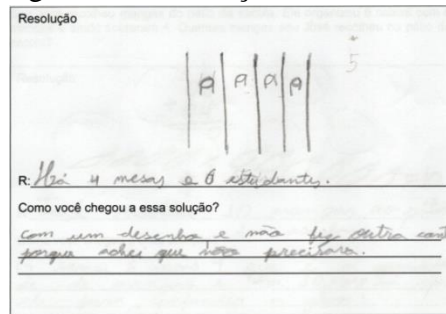 Resolução
5
R: Há 4 mesas e 6 estudantes.
Como você chegou a essa solução?
com um desenho e não fiz outra cont
porque achei que precisara.